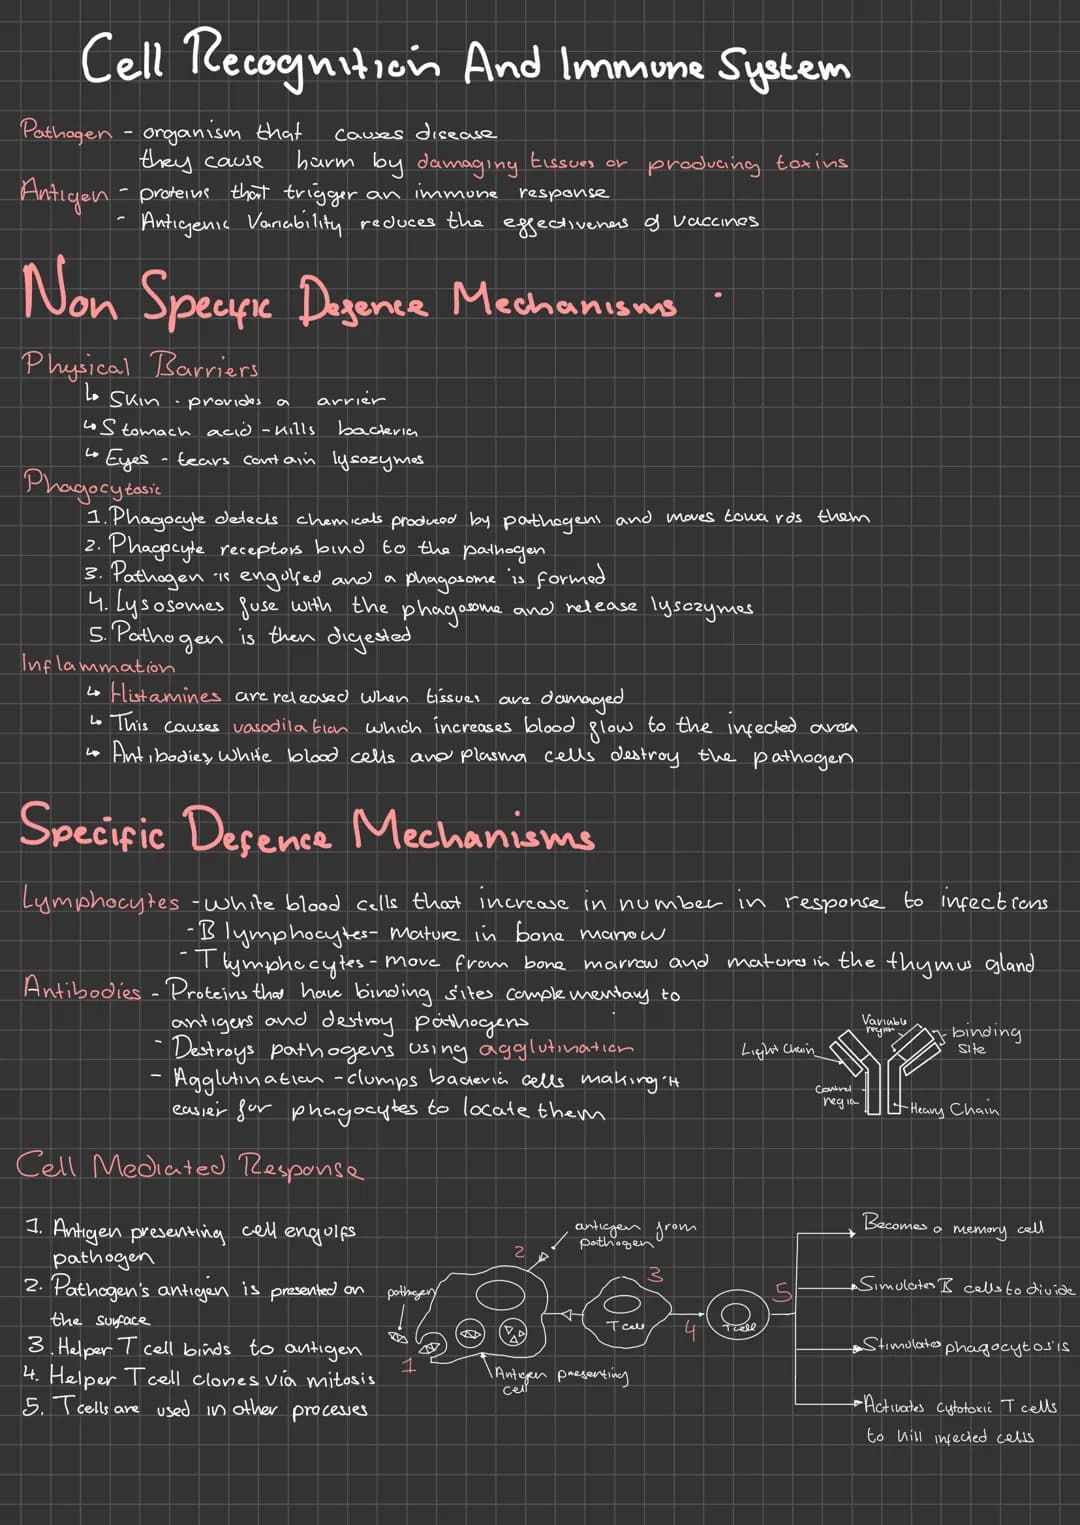 Cell Recognition And Immune System
Pathogen - organism that causes disease
they cause harm by damaging tissues or producing toxins
Antigen - proteins that trigger an immune response
- Antigenic Variability reduces the effectiveness of vaccines
Non Specific Defence Mechanisms .
Physical Barriers
↳ Skin . provides a arrier
↳ Stomach acid - kills bacteria
↳ Eyes - tears contain lysozymes
Phagocytosis
1. Phagocyte detects chemicals produced by pathogens and moves towards them
2. Phagocyte receptors bind to the pathogen
3. Pathogen is engulfed and a phagosome is formed
4. Lysosomes fuse with the phagosome and release lysozymes
5. Pathogen is then digested
Inflammation
↳ Histamines are released when tissues are damaged
↳ This causes vasodilation which increases blood flow to the infected area
↳ Antibodies, White blood cells and plasma cells destroy the pathogen
Specific Defence Mechanisms
Lymphocytes - white blood cells that increase in number in response to infections
- B lymphocytes - mature in bone marrow
- T lymphocytes - move from bone marrow and matures in the thymus gland
Antibodies - Proteins that have binding sites complementary to
antigens and destroy pathogens
- Destroys pathogens using agglutination
- Agglutination - clumps bacteria cells making it
easier for phagocytes to locate them
Variable
region
binding
site
Light Chain
region
Heavy Chain
Cell Mediated Response
1. Antigen presenting cell engulfs
pathogen
2. Pathogen's antigen is presented on
the surface
3. Helper T cell binds to antigen
4. Helper T cell clones via mitosis
5. T cells are used in other processes
pathogen
1
2
antigen from
pathogen
3
T cell
4
T cell
5
Antigen presenting
cell
Becomes a memory cell
Simulates B cells to divide
Stimulates phagocytosis
Activates cytotoxic T cells
to kill infected cells